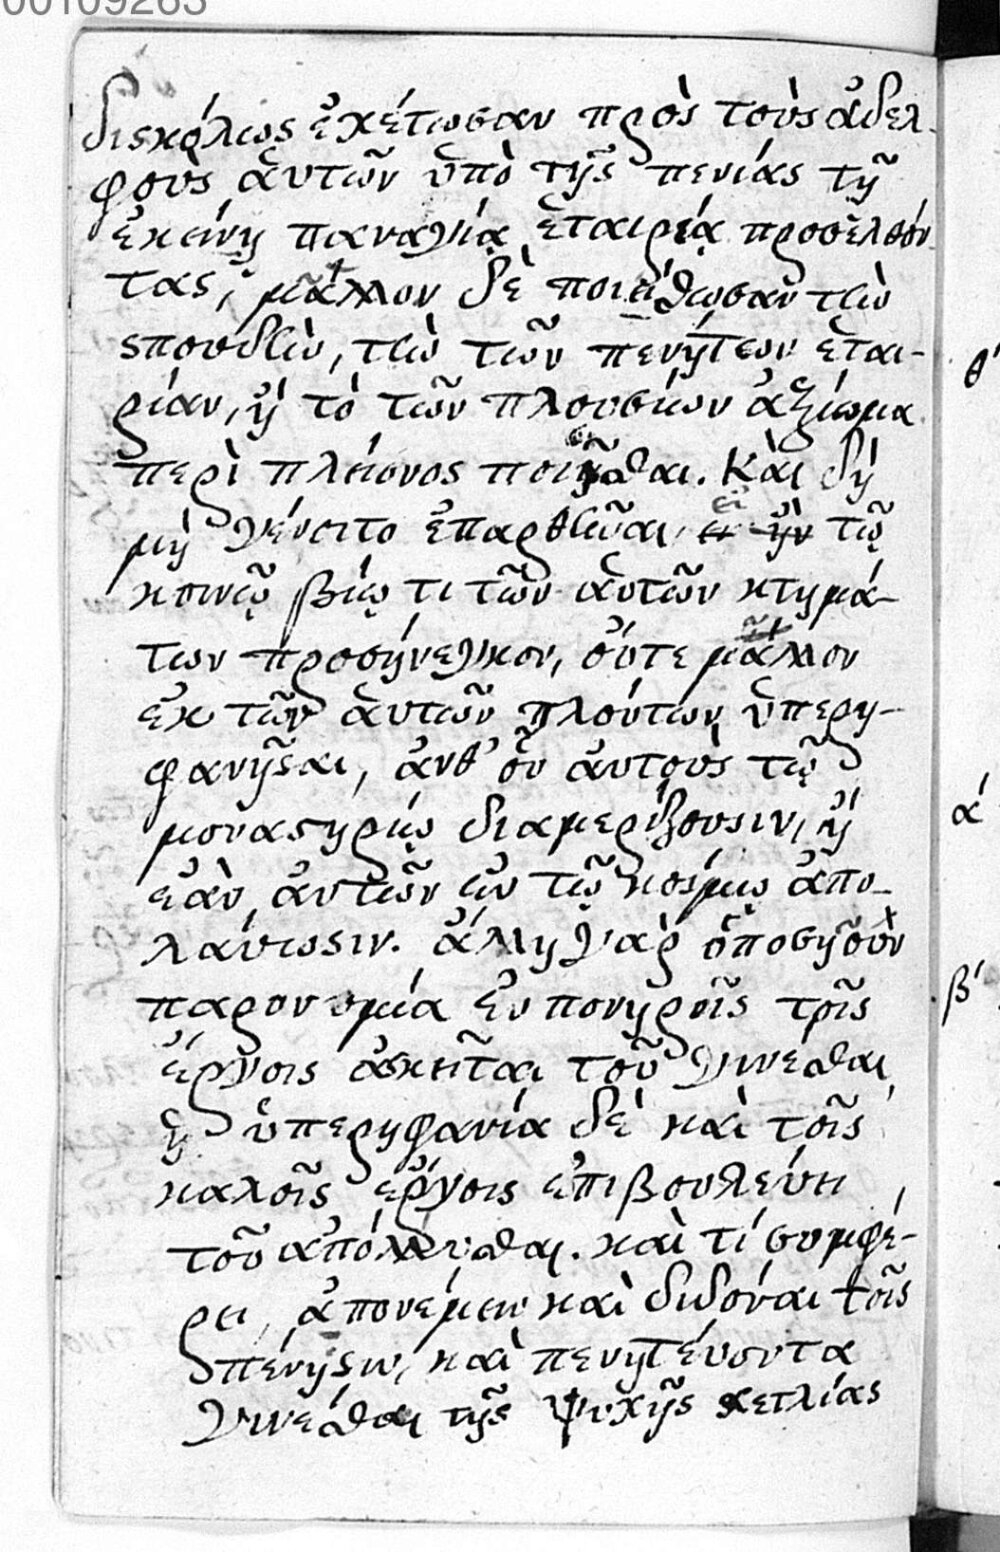 00109263
δισκόλως ἐχέτωσαν πρὸς τοὺς ἀδελ-
φους ἀυτῶν ὑπὸ τῆς πενίας τῇ
ἐκείνῃ παναγίᾳ ἑταιρείᾳ προσελθόν-
τας, μᾶλλον δὲ ποιείσθωσαν τὴν
σπουδὴν, τὴν τῶν πενήτεων ἑται-
ρίαν, ἢ τὸ τῶν πλουσίων ἀξίωμα
περὶ πλείονος ποιῆσθαι. Καὶ δὴ
μὴ γένοιτο ἐπαρθῆναι, εἰ τῷ
κοινῷ βίῳ τι τῶν ἀυτῶν κτημά-
των προσήνεγκον, ὄυτε μᾶλλον
ἐκ τῶν ἀυτῶν πλούτων ὑπερη-
φανῆσαι, ἀνθ' οὗ ἀυτοὺς τῷ
μοναστηρίῳ διαμερίζουσιν, ἢ
ἐὰν ἀυτῶν ἐν τῷ κόσμῳ ἀπο-
λάυωσιν. ἄλλη γὰρ ὁποσητοῦν
παρονομία ἐν πονηροῖς τοῖς
ἔργοις ἀσκεῖται τοῦ γίνεσθαι,
ἡ ὑπερηφανία δὲ καὶ τοῖς
καλοῖς ἔργοις ἐπιβουλεύει
τοῦ ἀπόλλυσθαι. καὶ τί συμφέ-
ρει, ἀπονέμειν καὶ διδόναι τοῖς
πένησιν, καὶ πενητέυοντα
γίνεσθαι τῆς ψυχῆς σχετλίας
θ'
ά
β'